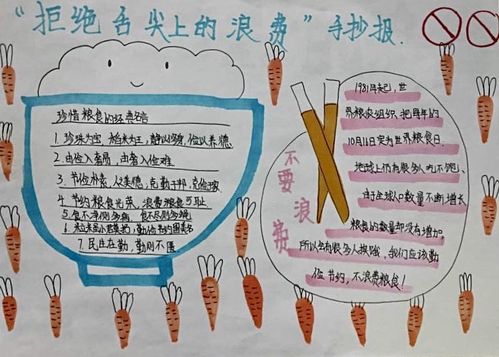 “拒绝舌尖上的浪费”手抄报.
珍惜粮食的经典名言
1 珍珠为宝 稻米为王, 静以修身, 俭以养德
2. 由俭入奢易, 由奢入俭难
3. 节俭朴素, 人之美德
4. 节约粮食光荣, 浪费粮食可耻
7. 民生在勤 勤则不匮
不要浪费
1981年起, 世
界粮农组织把每年的
10月16日定为世界粮食日.
地球上仍有很多人吃不饱.
由于全球人口数量不断增长
粮食的数量却没有增加.
所以会有很多人挨饿, 我们应该勤
俭节约, 不浪费粮食!